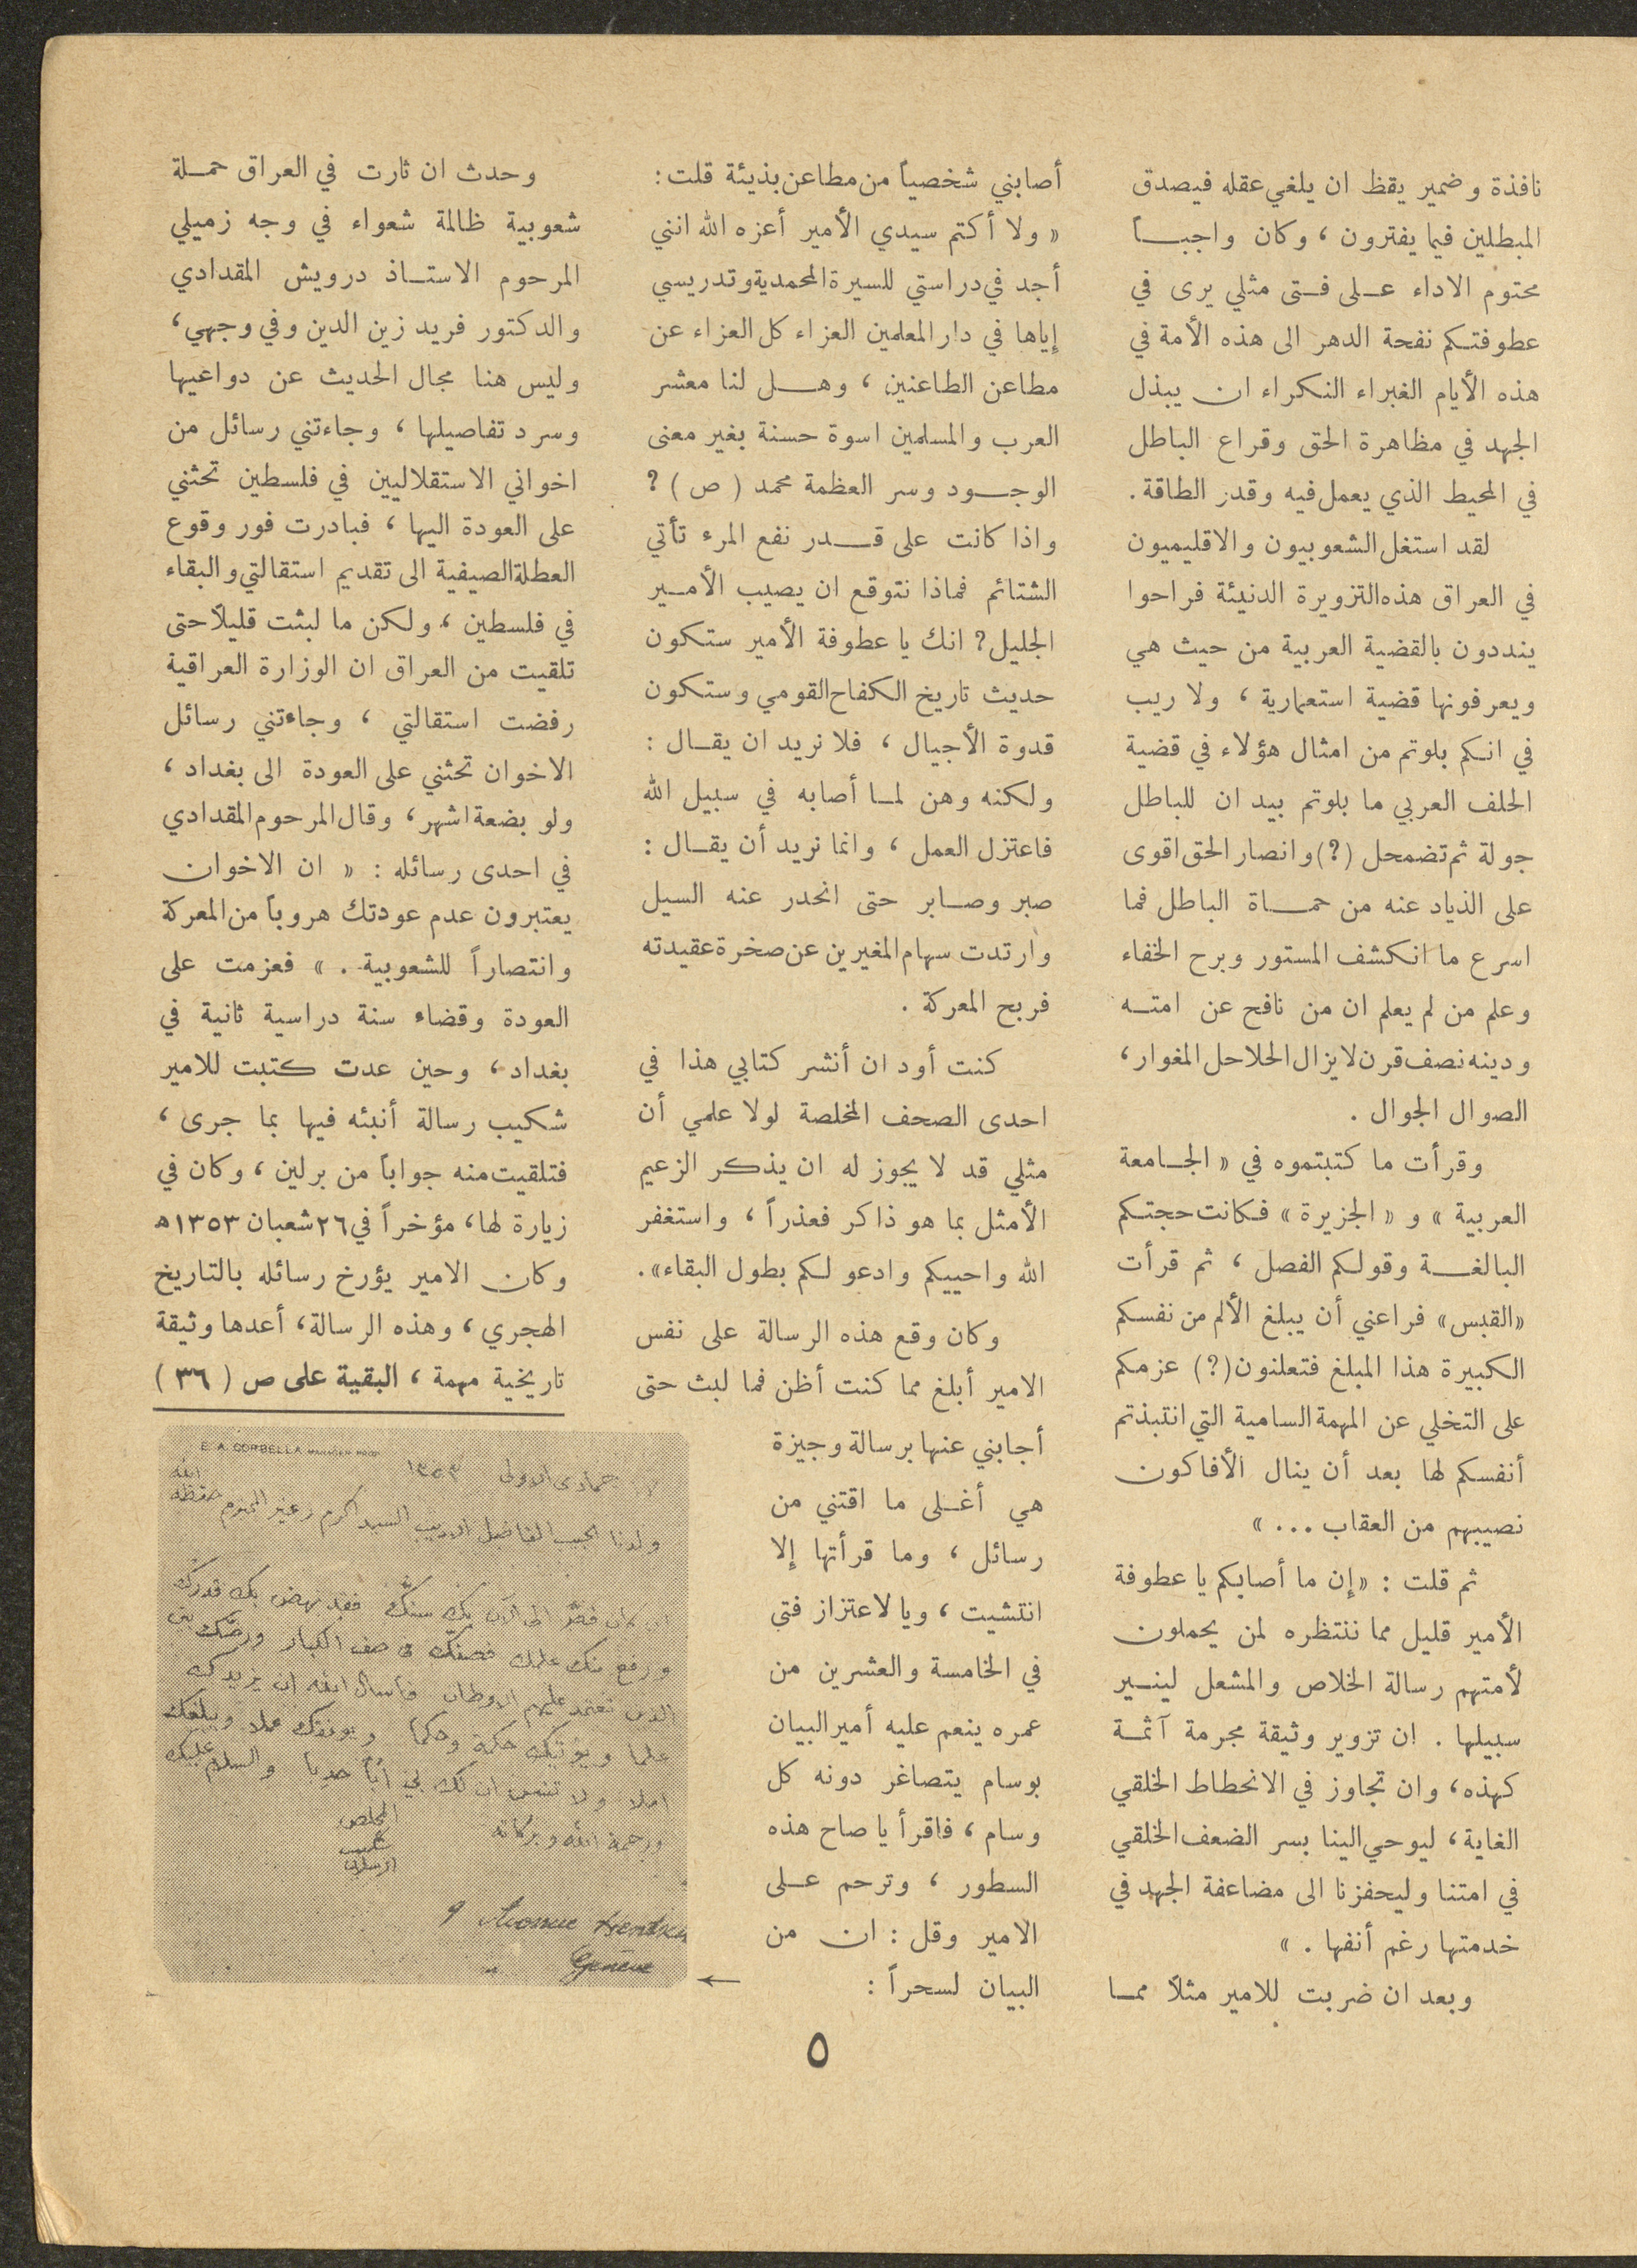 نافذة وضمير يقظ ان يلغي عقله فيصدق
المبطلين فيما يفترون ، وكان واجبـــاً
محتوم الاداء عـلى فـتى مثلي يرى في
عطوفتـكم نفحة الدهر الى هذه الأمة في
هذه الأيام الغبراء النكراء ان يبذل
الجهد في مظاهرة الحق وقراع الباطل
في المحيط الذي يعمل فيه وقدر الطاقة .
لقد استغل الشعوبيون والاقليميون
في العراق هذه التزويرة الدنيئة فراحوا
ينددون بالقضية العربية من حيث هي
ويعرفونها قضية استعمارية ، ولا ريب
في انـكم بلوتم من امثال هؤلاء في قضية
الحلف العربي ما بلوتم بيد ان للباطل
جولة ثم تضمحل (؟) وانصار الحق اقوى
على الذياد عنه من حمـــاة الباطل فما
اسرع ما انكشف المستور وبرح الخفاء
وعلم من لم يعلم ان من نافح عن امتــه
ودينه نصف قرن لا يزال الحلاحل المغوار ،
الصوال الجوال .
وقرأت ما كتبتموه في « الجـامعة
العربية » و « الجزيرة » فـكانت حجتـكم
البالغـــة وقولـكم الفصل ، ثم قرأت
«القبس» فراعني أن يبلغ الألم من نفسكم
الكبيرة هذا المبلغ فتعلنون (؟) عزمكم
على التخلي عن المهمة السامية التي انتبذتم
أنفسكم لها بعد أن ينال الأفاكون
نصيبهم من العقاب ... »
ثم قلت : «إن ما أصابكم يا عطوفة
الأمير قليل مما ننتظره لمن يحملون
لأمتهم رسالة الخلاص والمشعل لينـير
سبيلها . ان تزوير وثيقة مجرمة آثمـة
كهذه ، وان تجاوز في الانحطاط الخلقي
الغاية ، ليوحي الينا بسر الضعف الخلقي
في امتنا وليحفزنا الى مضاعفة الجهد في
خدمتها رغم أنفها . »
وبعد ان ضربت للامير مثلاً ممـا
أصابني شخصياً من مطاعن بذيئة قلت :
« ولا أكتم سيدي الأمير أعزه الله انني
أجد في دراستي للسيرة المحمدية وتدريسي
إياها في دار المعلمين العزاء كل العزاء عن
مطاعن الطاعنين ، وهـــل لنا معشر
العرب والمسلمين اسوة حسنة بغير معنى
الوجـــود وسر العظمة محمد ( ص ) ؟
واذا كانت على قـــدر نفع المرء تأتي
الشتائم فماذا نتوقع ان يصيب الأمـير
الجليل ؟ انك يا عطوفة الأمير ستكون
حديث تاريخ الكفاح القومي وستكون
قدوة الأجيال ، فلا نريد ان يقـال :
ولكنه وهن لمـا أصابه في سبيل الله
فاعتزل العمل ، وانما نريد أن يقـال :
صبر وصـابر حتى انحدر عنه السيل
وارتدت سهام المغيرين عن صخرة عقيدته
فربح المعركة .
كنت أود ان أنشر كتابي هذا في
احدى الصحف المخلصة لولا علمي أن
مثلي قد لا يجوز له ان يذكر الزعيم
الأمثل بما هو ذاكر فعذراً ، واستغفر
الله واحييكم وادعو لـكم بطول البقاء».
وكان وقع هذه الرسالة على نفس
الامير أبلغ مما كنت أظن فما لبث حتى
أجابني عنها برسالة وجيزة
هي أغـلى ما اقتني من
رسائل ، وما قرأتها إلا
انتشيت ، ويا لاعتزاز فتى
في الخامسة والعشرين من
عمره ينعم عليه أمير البيان
بوسام يتصاغر دونه كل
وسام ، فاقرأ يا صاح هذه
السطور ، وترحم عـلى
الامير وقل : ان من
البيان لسحراً :
وحدث ان ثارت في العراق حمـلة
شعوبية ظالمة شعواء في وجه زميلي
المرحوم الاستـاذ درويش المقدادي
والدكتور فريد زين الدين وفي وجهي ،
وليس هنا مجال الحديث عن دواعيها
وسرد تفاصيلها ، وجاءتني رسائل من
اخواني الاستقلاليين في فلسطين تحثني
على العودة اليها ، فبادرت فور وقوع
العطلة الصيفية الى تقديم استقالتي والبقاء
في فلسطين ، ولكن ما لبثت قليلاً حتى
تلقيت من العراق ان الوزارة العراقية
رفضت استقالتي ، وجاءتني رسائل
الاخوان تحثني على العودة الى بغداد ،
ولو بضعة اشهر ، وقال المرحوم المقدادي
في احدى رسائله : « ان الاخوان
يعتبرون عدم عودتك هروباً من المعركة
وانتصاراً للشعوبية . » فعزمت على
العودة وقضاء سنة دراسية ثانية في
بغداد ، وحين عدت كتبت للامير
شكيب رسالة أنبئه فيها بما جرى ،
فتلقيت منه جواباً من برلين ، وكان في
زيارة لها ، مؤخراً في ٢٦ شعبان ١٣٥٣ ه
وكان الامير يؤرخ رسائله بالتاريخ
الهجري ، وهذه الرسالة ، أعدها وثيقة
تاريخية مهمة ، البقية على ص ( ٣٦ )
E. A. CORBELLA
جمادى الاولى ١٣٥٣
ولدنا الحبيب الفاضل الاديب السيد اكرم زعيتر المحترم حفظه الله
فقد نهض بك قدرك
ورفع منك علمك فصفك في صف الكبار ورصك بين
الذين تعتمد عليهم الاوطان فأسأل الله ان يزيدك
علما ويؤتيك حكمة وحكما ويوفقك عملا ويبلغك
املا ولا تنس ان لك بي أباً حدبا والسلام عليك
ورحمة الله وبركاته
المخلص
شكيب
ارسلان
9 Avenue Hentsch
Genève
٥